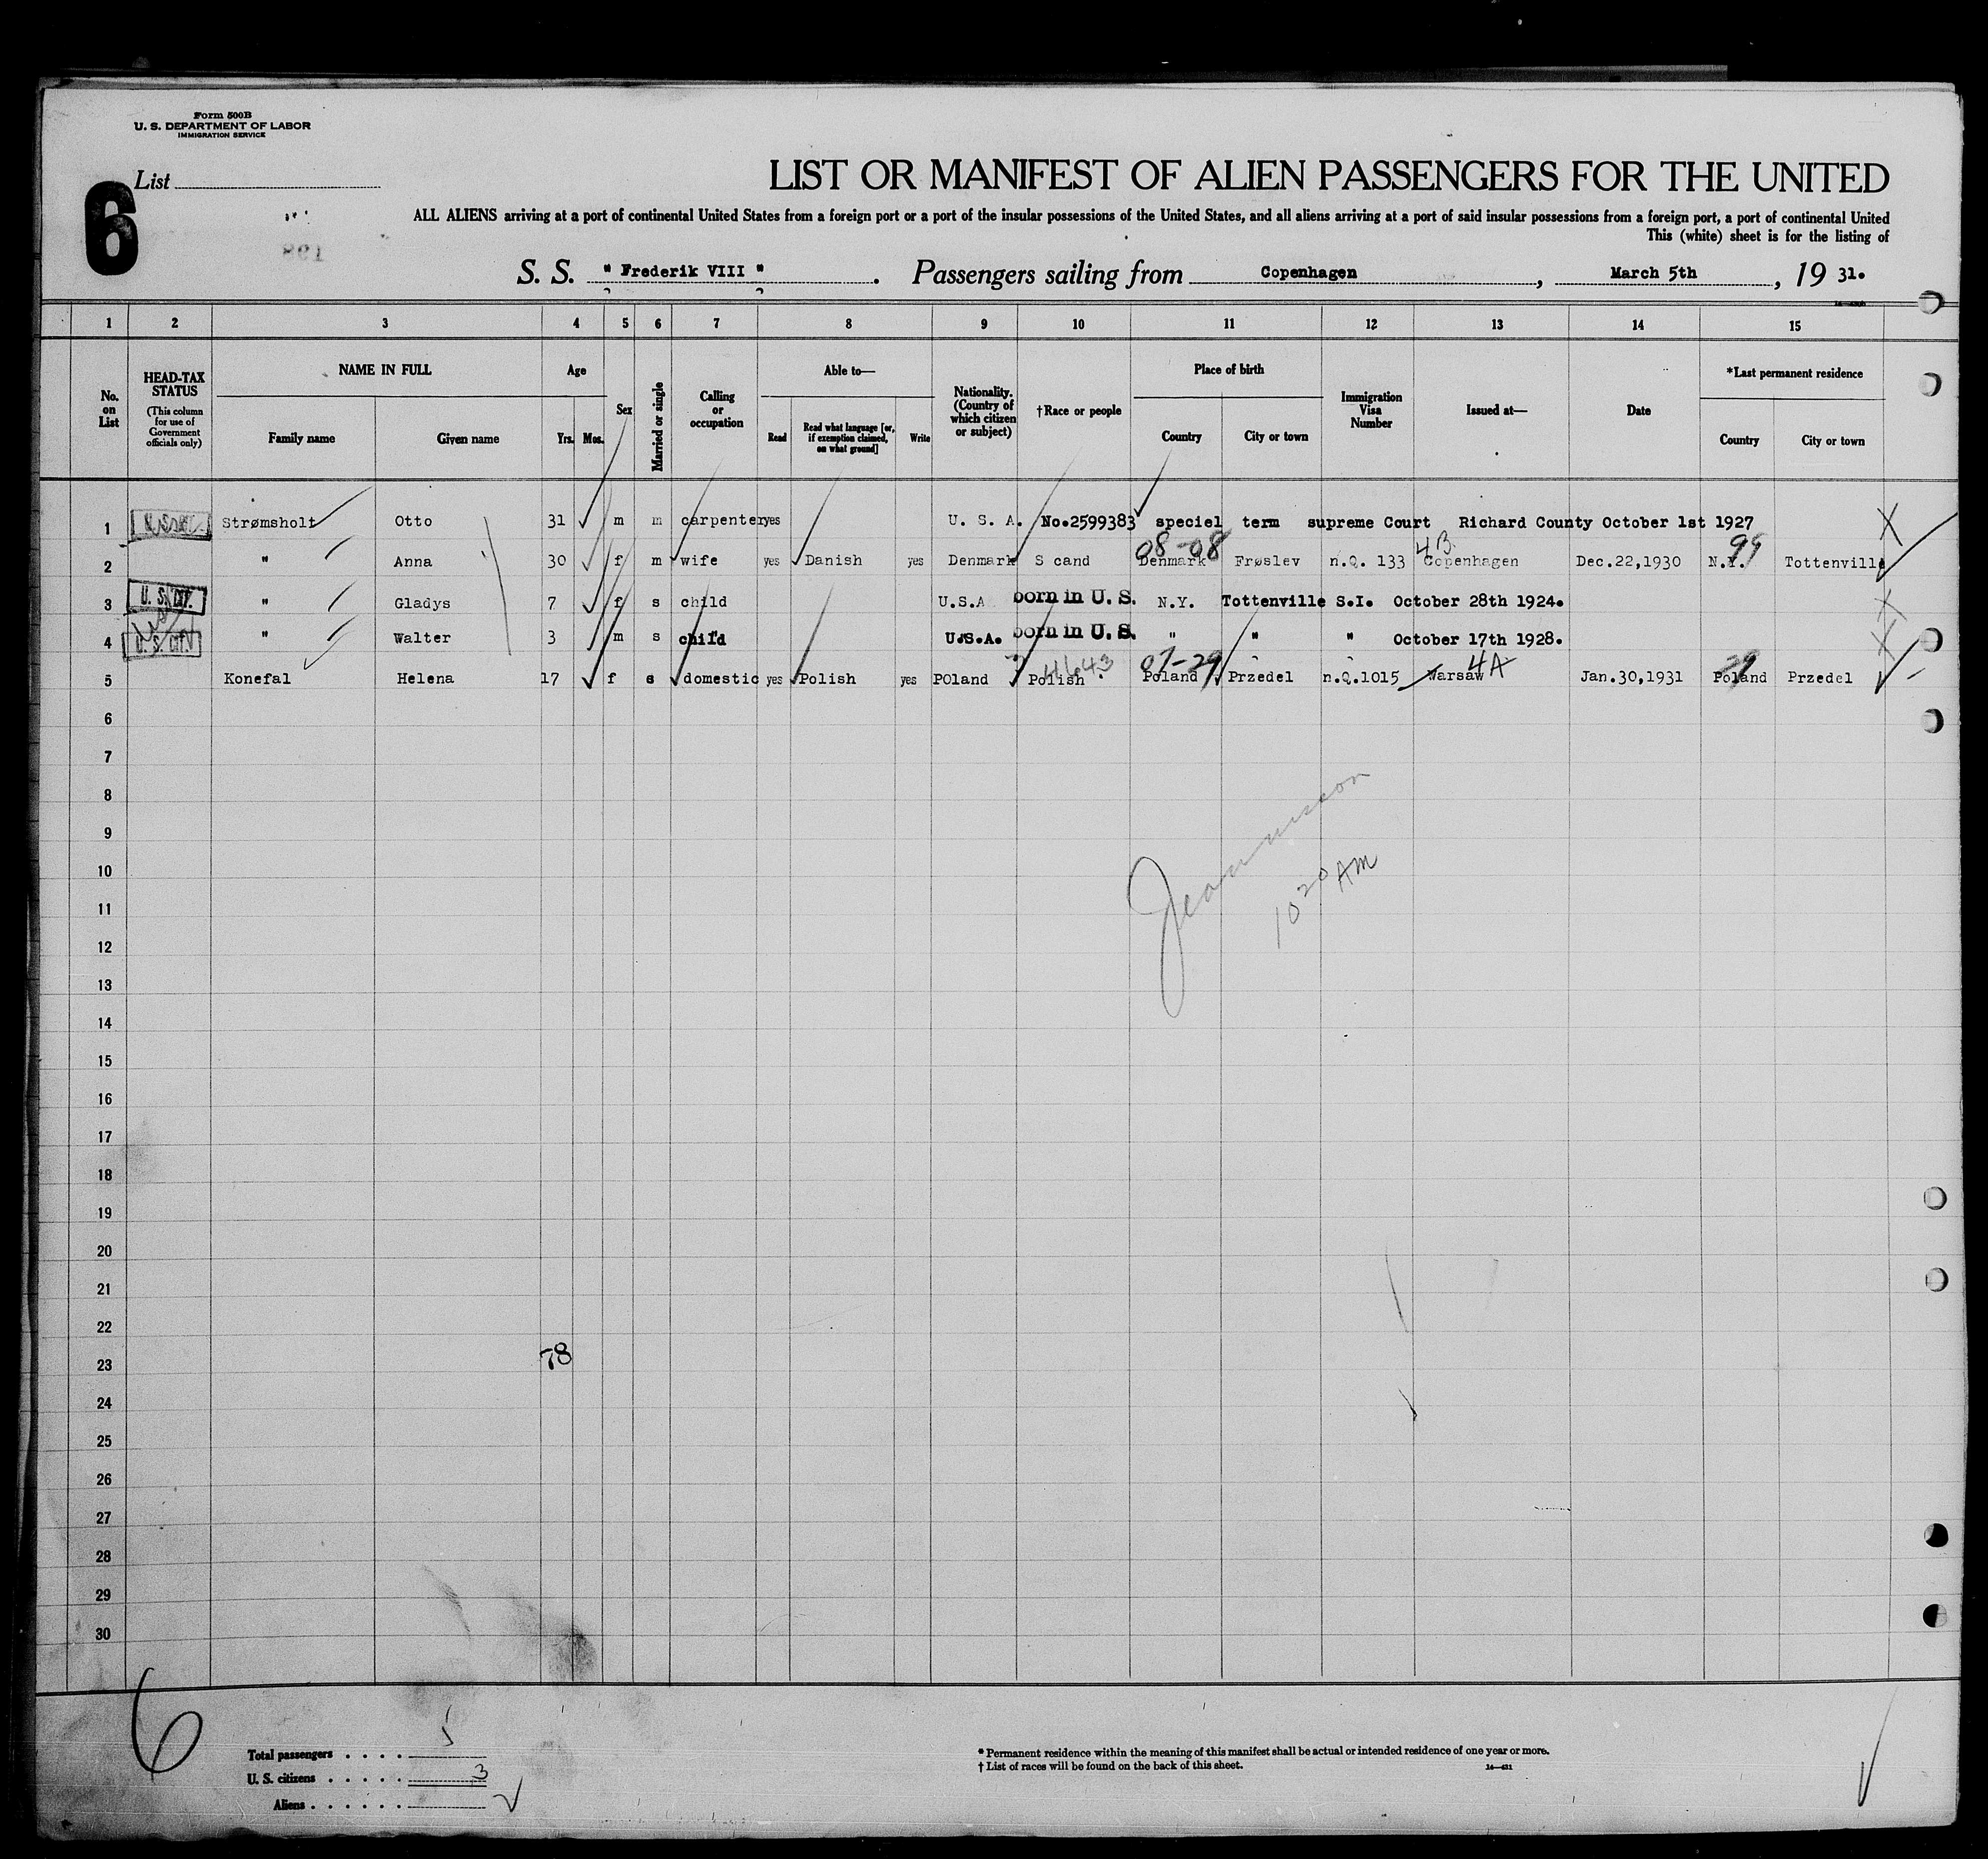 Form 500B
U. S. DEPARTMENT OF LABOR
IMMIGRATION SERVICE
List
6
LIST OR MANIFEST OF ALIEN PASSENGERS FOR THE UNITED
ALL ALIENS arriving at a port of continental United States from a foreign port or a port of the insular possessions of the United States, and all aliens arriving at a port of said insular possessions from a foreign port, a port of continental United
This (white) sheet is for the listing of
S. S. " Frederik VIII " . Passengers sailing from Copenhagen , March 5th , 19 31.
1 2 3 4 5 6 7 8 9 10 11 12 13 14 15
No. on List
HEAD-TAX STATUS (This column for use of Government officials only)
NAME IN FULL
Family name Given name
Age
Yrs. Mos.
Sex
Married or single
Calling or occupation
Able to—
Read Read what language [or, if exemption claimed, on what ground] Write
Nationality. (Country of which citizen or subject)
†Race or people
Place of birth
Country City or town
Immigration Visa Number
Issued at—
Date
*Last permanent residence
Country City or town
1 Strømsholt Otto 31 m m carpenter yes U. S. A. No.2599383 speciel term supreme Court Richard County October 1st 1927
08-08 4B 99
2 " Anna 30 f m wife yes Danish yes Denmark S cand Denmark Frøslev n.Q. 133 Copenhagen Dec.22,1930 N.Y. Tottenville
3 U. S. CIT. " Gladys 7 f s child U.S.A born in U. S. N.Y. Tottenville S.I. October 28th 1924.
4 U. S. CIT. " Walter 3 m s child U.S.A. born in U. S. " " " October 17th 1928.
4643 07-29 4A 29
5 Konefal Helena 17 f s domestic yes Polish yes POland Polish Poland Przedel n.Q.1015 Warsaw Jan.30,1931 Poland Przedel
6
7
8
9
10
11
12
13
14
15
16
17
18
19
20
21
22
23
24
25
26
27
28
29
30
10 20 AM
78
6
Total passengers . . . . 5
U. S. citizens . . . . . 3
Aliens . . . . . .
* Permanent residence within the meaning of this manifest shall be actual or intended residence of one year or more.
† List of races will be found on the back of this sheet.